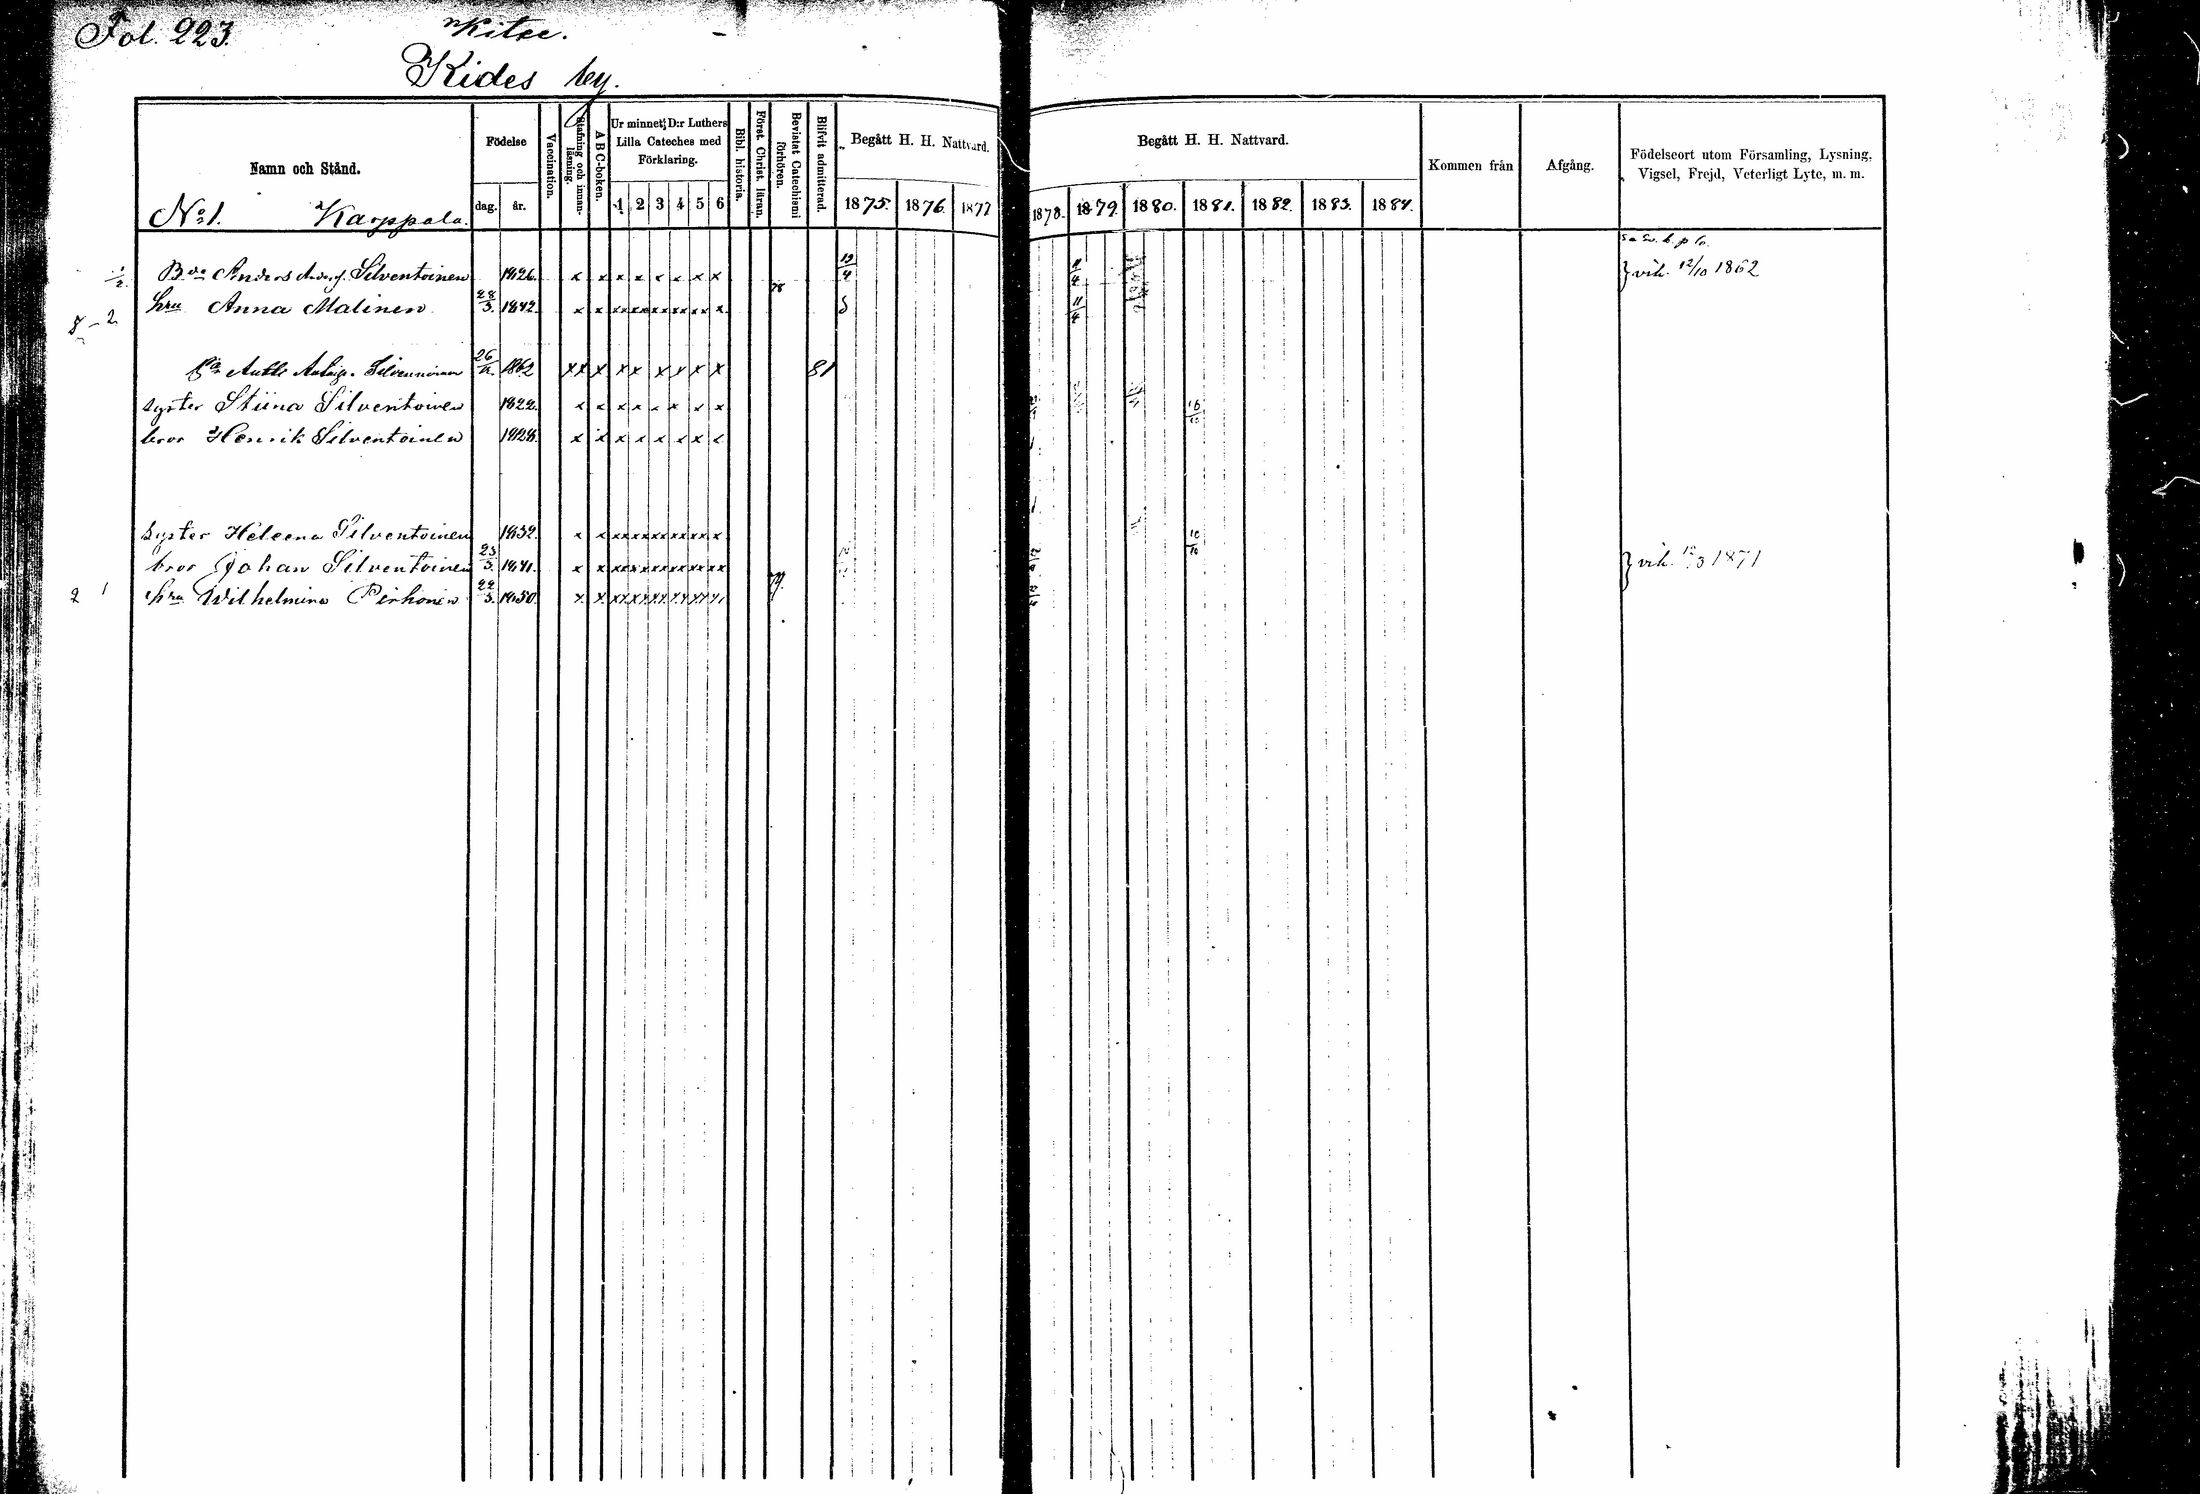 Fol. 223.
Kitee.
Kides by.
Namn och Stånd.
Födelse
dag.
år.
Vaccination.
Stafning och innan-läsning.
A B C-boken.
Ur minnet: D:r Luthers
Lilla Cateches med
Förklaring.
1 2 3 4 5 6
Bibl. historia.
Först. Christ. läran.
Bevistat Catechismi förhören.
Blifvit admitterad.
Begått H. H. Nattvard.
1875. 1876. 1877
Begått H. H. Nattvard.
1878. 1879. 1880. 1881. 1882. 1883. 1884.
Kommen från
Afgång.
Födelseort utom Församling, Lysning,
Vigsel, Frejd, Veterligt Lyte, m. m.
No 1. Karppala.
Bde Anders Silventoinen 1826. x x x x x x x x 12/4 11/4 } vih. 12/10 1862
8-2 hru Anna Malinen 28/3. 1842. 78 11/4
Antti Silvennoinen 1862 xx x x x x x x x 81
syster Stiina Silventoinen 1822. x x x x x x x x
bror Henrik Silventoinen 1828. x x x x x x x x
syster Heleena Silventoinen 1832. 10/10
bror Johan Silventoinen 23/3. 1841. } vih. 12/3 1871
2 1 hru Wilhelmina Pirhonen 22/3. 1850. 79.